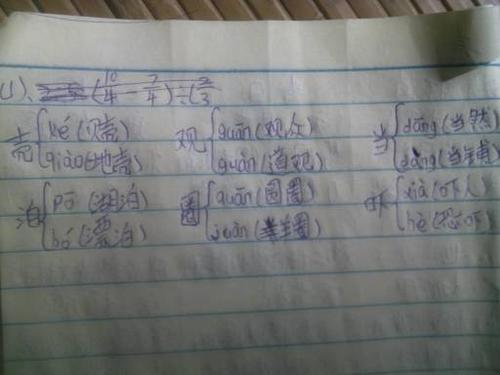 (1)、(10/4 7/4)÷(2/3
壳{ké(贝壳) 观{guān(观众) 当{dāng(当然)
qiào(地壳) guàn(道观) dàng
泊{pō(湖泊) 圈{quān(圆圈) 吓{xià(吓人)
bó(漂泊) juàn(羊圈) hè(恐吓)